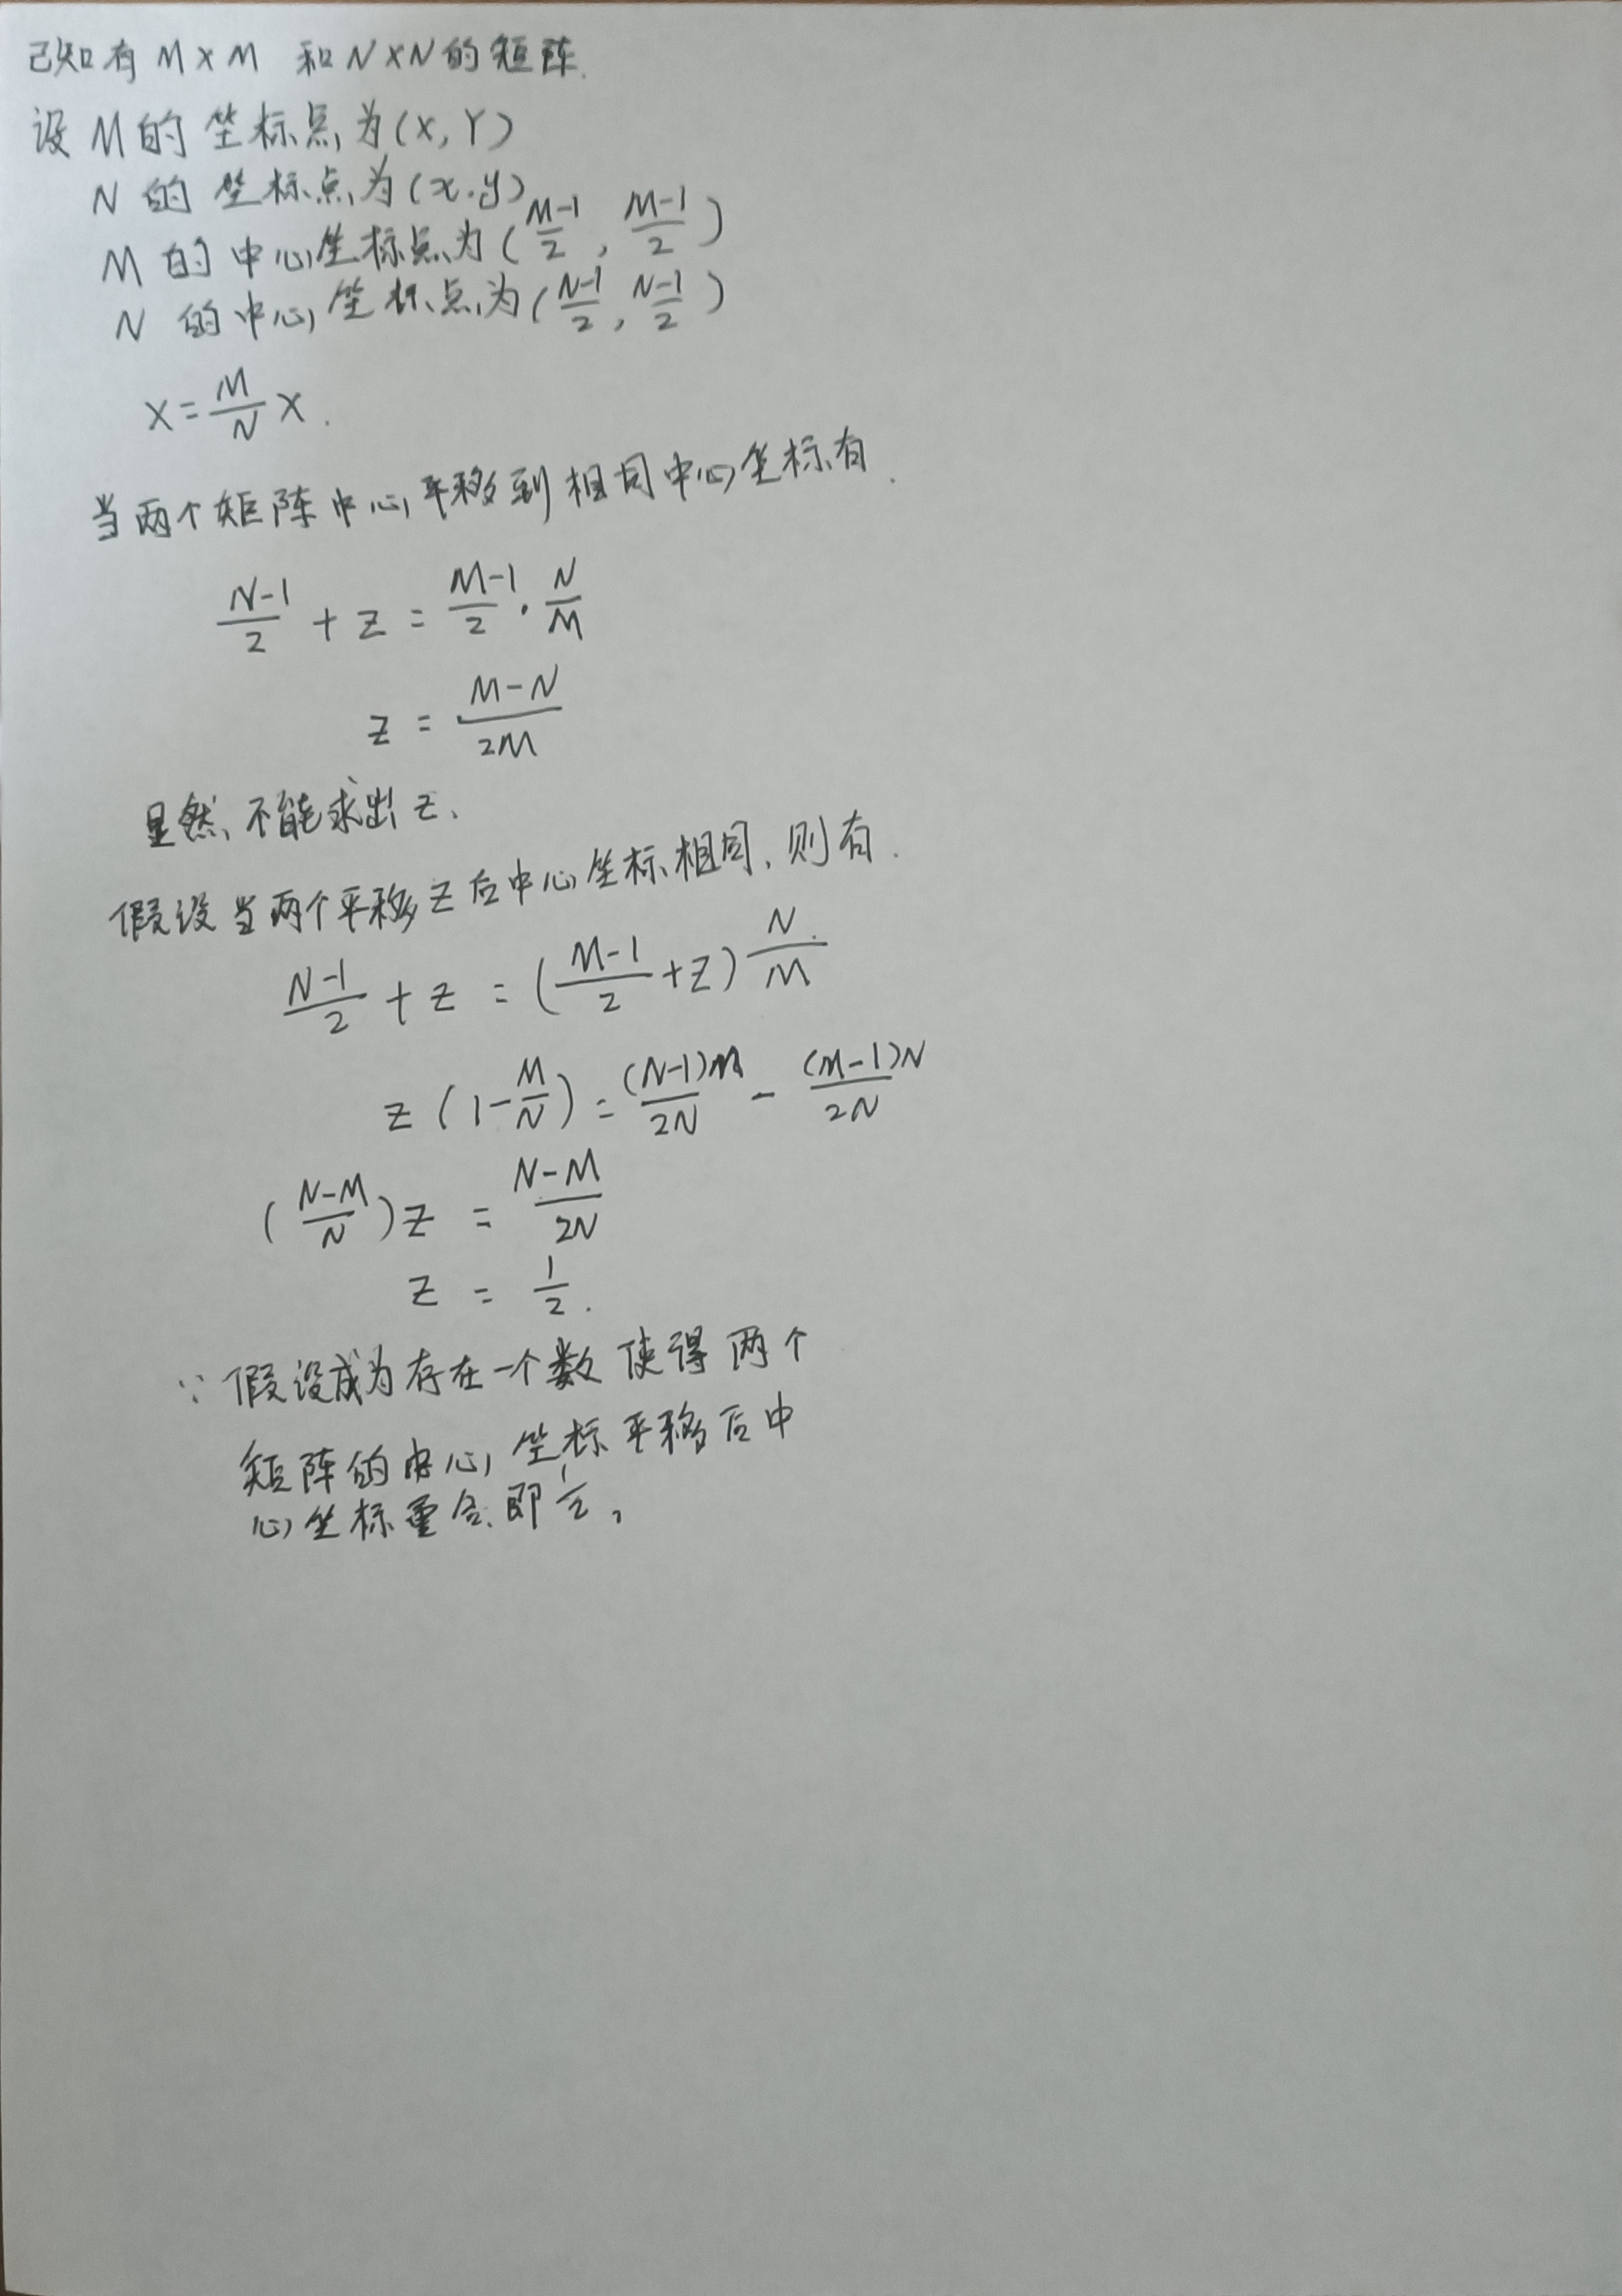 已知有 M×M 和 N×N的矩阵.
设 M的 坐标点为(X, Y)
N 的 坐标点为(x.y)
M 的 中心坐标点为 (\frac{M-1}{2}, \frac{M-1}{2})
N 的中心坐标点为(\frac{N-1}{2}, \frac{N-1}{2})
X=\frac{M}{N} x.
当两个矩阵中心平移到相同中心坐标有.
\frac{N-1}{2} + z = \frac{M-1}{2} · \frac{N}{M}
z = \frac{M-N}{2M}
显然、不能求出 z、
假设当两个平移 z 后中心坐标相同、则有.
\frac{N-1}{2} + z = (\frac{M-1}{2} + z) \frac{N}{M}
z (1-\frac{M}{N}) = \frac{(N-1)M}{2N} - \frac{(M-1)N}{2N}
(\frac{N-M}{N}) z = \frac{N-M}{2N}
z = \frac{1}{2}.
∵ 假设成为存在一个数 使得 两个
矩阵的中心坐标平移后中
心坐标重合、即 \frac{1}{2},